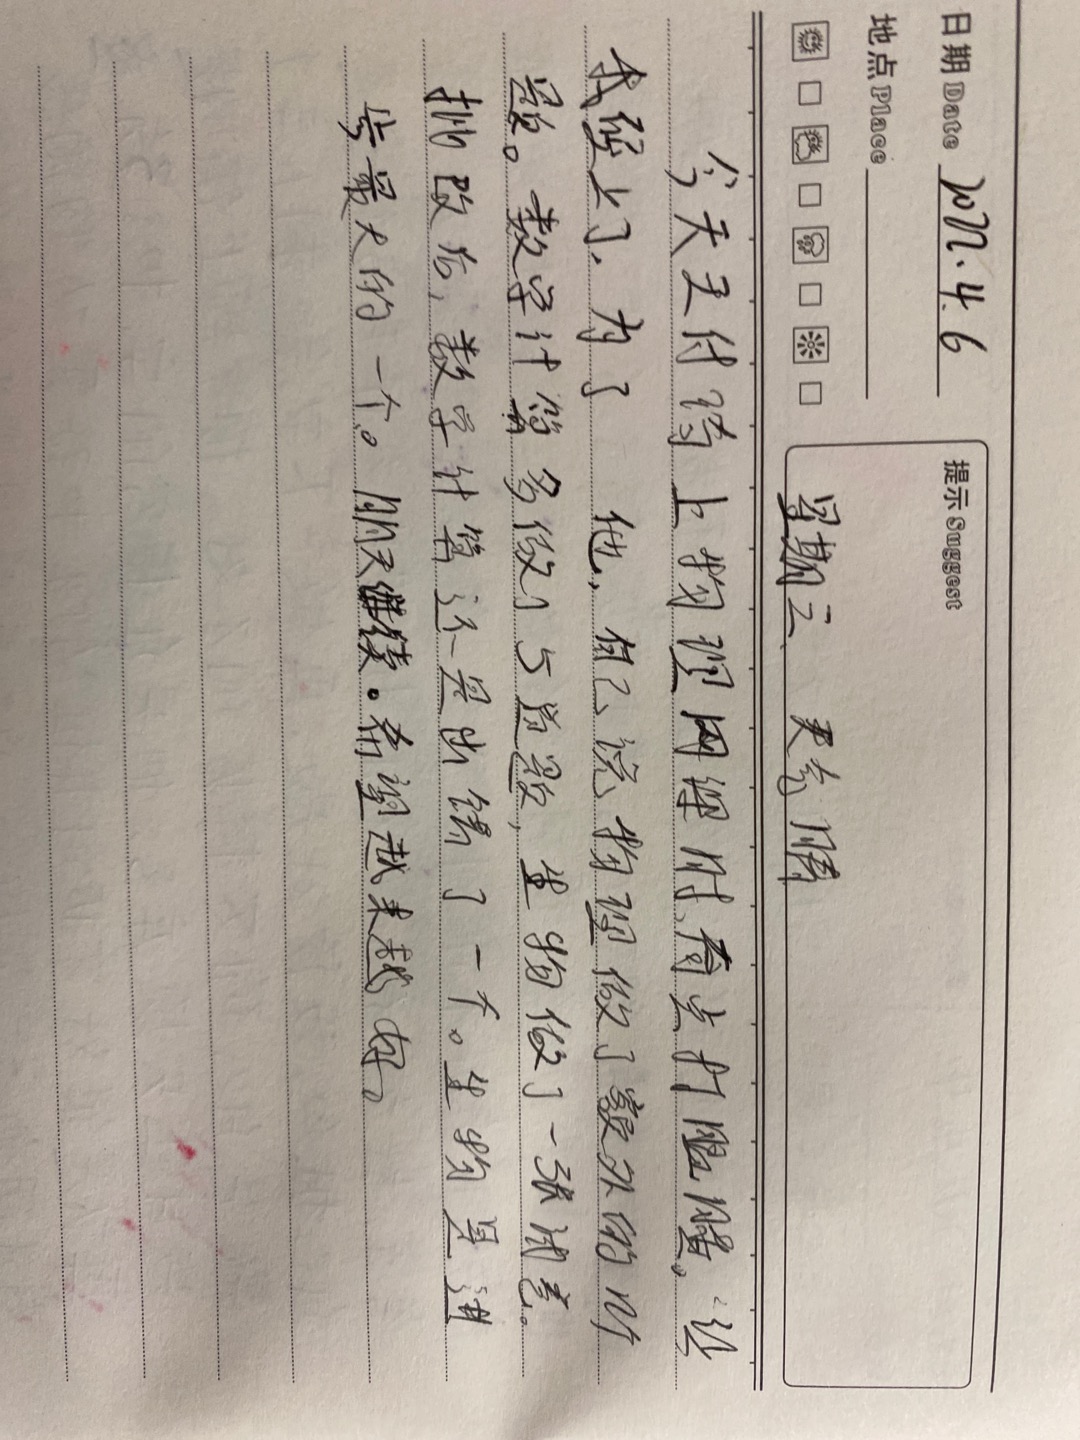 日期 Date 2022.4.6
地点 Place
提示 Suggest
星期三
今天天付 上物理网课时,有点打瞌睡。让
我碰上了,为了 他,自己说,物理做了额外的
题。数学计算多做了5道题,生物做了一张试卷。
批改后,数学计算还是出错了一个。生物是进
步最大的一个。明天继续。希望越来越好。